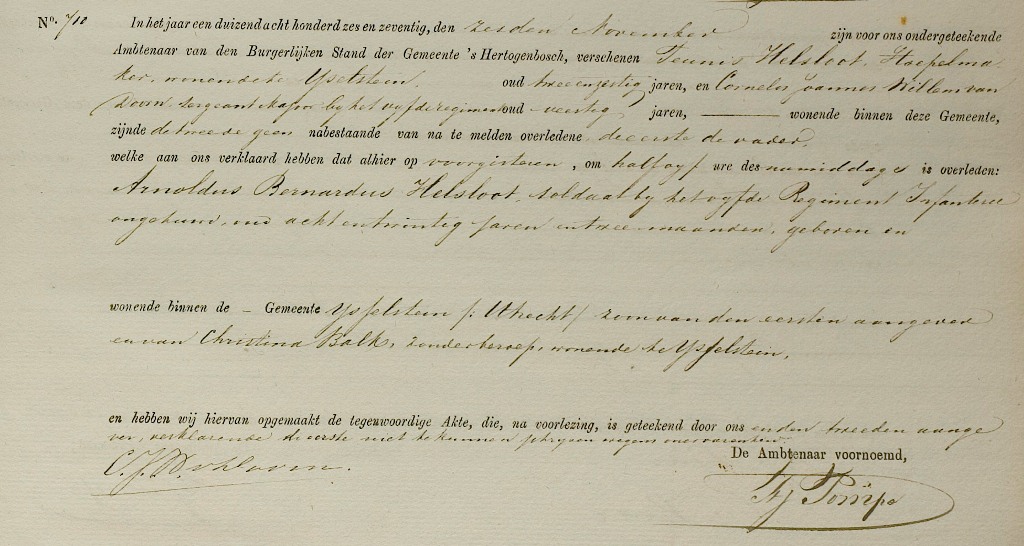 No. 710 In het jaar een duizend acht honderd zes en zeventig, den zesden November zijn voor ons ondergeteekende
Ambtenaar van den Burgerlijken Stand der Gemeente 's Hertogenbosch, verschenen Teunis Helsloot, Hoepelma-
ker, wonende te Ysselstein, oud twee en zestig jaren, en Cornelis Joannes Willem van
Doorn, sergeant majoor by het vyfde regiment oud veertig jaren, wonende binnen deze Gemeente,
zijnde de tweede geen nabestaande van na te melden overledene, de eerste de vader,
welke aan ons verklaard hebben dat alhier op voorgisteren, om half vyf ure des namiddags is overleden:
Arnoldus Bernardus Helsloot, soldaat by het vyfde Regiment Infanterie
ongehuwd, oud acht en twintig jaren en twee maanden, geboren en
wonende binnen de Gemeente Ysselstein /: Utrecht / zoon van den eersten aangever
en van Christina Balk, zonder beroep, wonende te Ysselstein.
en hebben wij hiervan opgemaakt de tegenwoordige Akte, die, na voorlezing, is geteekend door ons en den tweeden aange
ver, verklarende de eerste niet te kunnen schryven wegens onervarenheid
De Ambtenaar voornoemd,